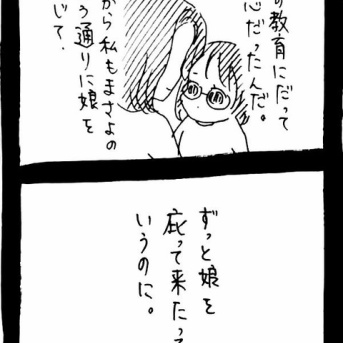 の教育にだって
心だったんだ。
から私もまさよの
う通りに娘を
じて、
ずっと娘を
庇って来たって
いうのに。